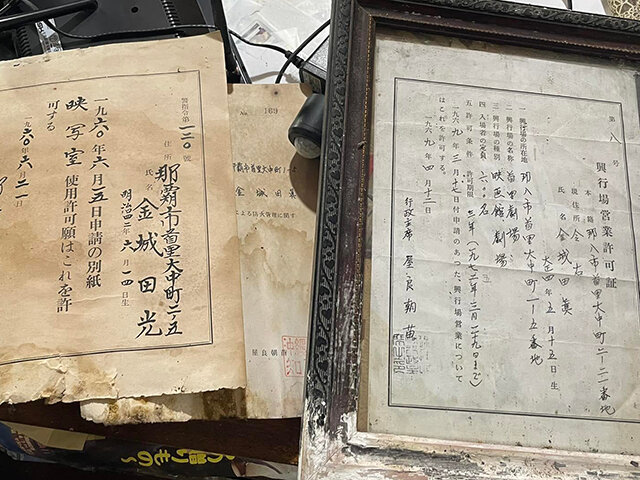 警指令第一三〇號
住所 那覇市首里大中町二ノ五
氏名 金城田光
明治四二年六月一四日生
一九六〇年六月一五日申請の別紙
映写室 使用許可願はこれを許
可する
一九六〇年六月二一日
No. 169
那覇市首里大中町
金城田
による防火管理に関す
屋良朝苗
第 八 号
興行場営業許可証
本籍 那覇市首里大中町二ノ二一番地
現住所 右
氏名 金城田真
大正四年五月十五日生
一 興行場の所在地 那覇市首里大中町一ノ五番地
二 興行場の名称 首里劇場
三 興行場の種別 映画館劇場
四 入場者の定員 六〇〇名
五 許可条件 許可期限 三年(一九七二年三月二十九日まで)
一九六九年三月十七日付申請のあつた興行場営業について
はこれを許可する。
一九六九年四月十二日
行政主席 屋良朝苗
り増りもの〜